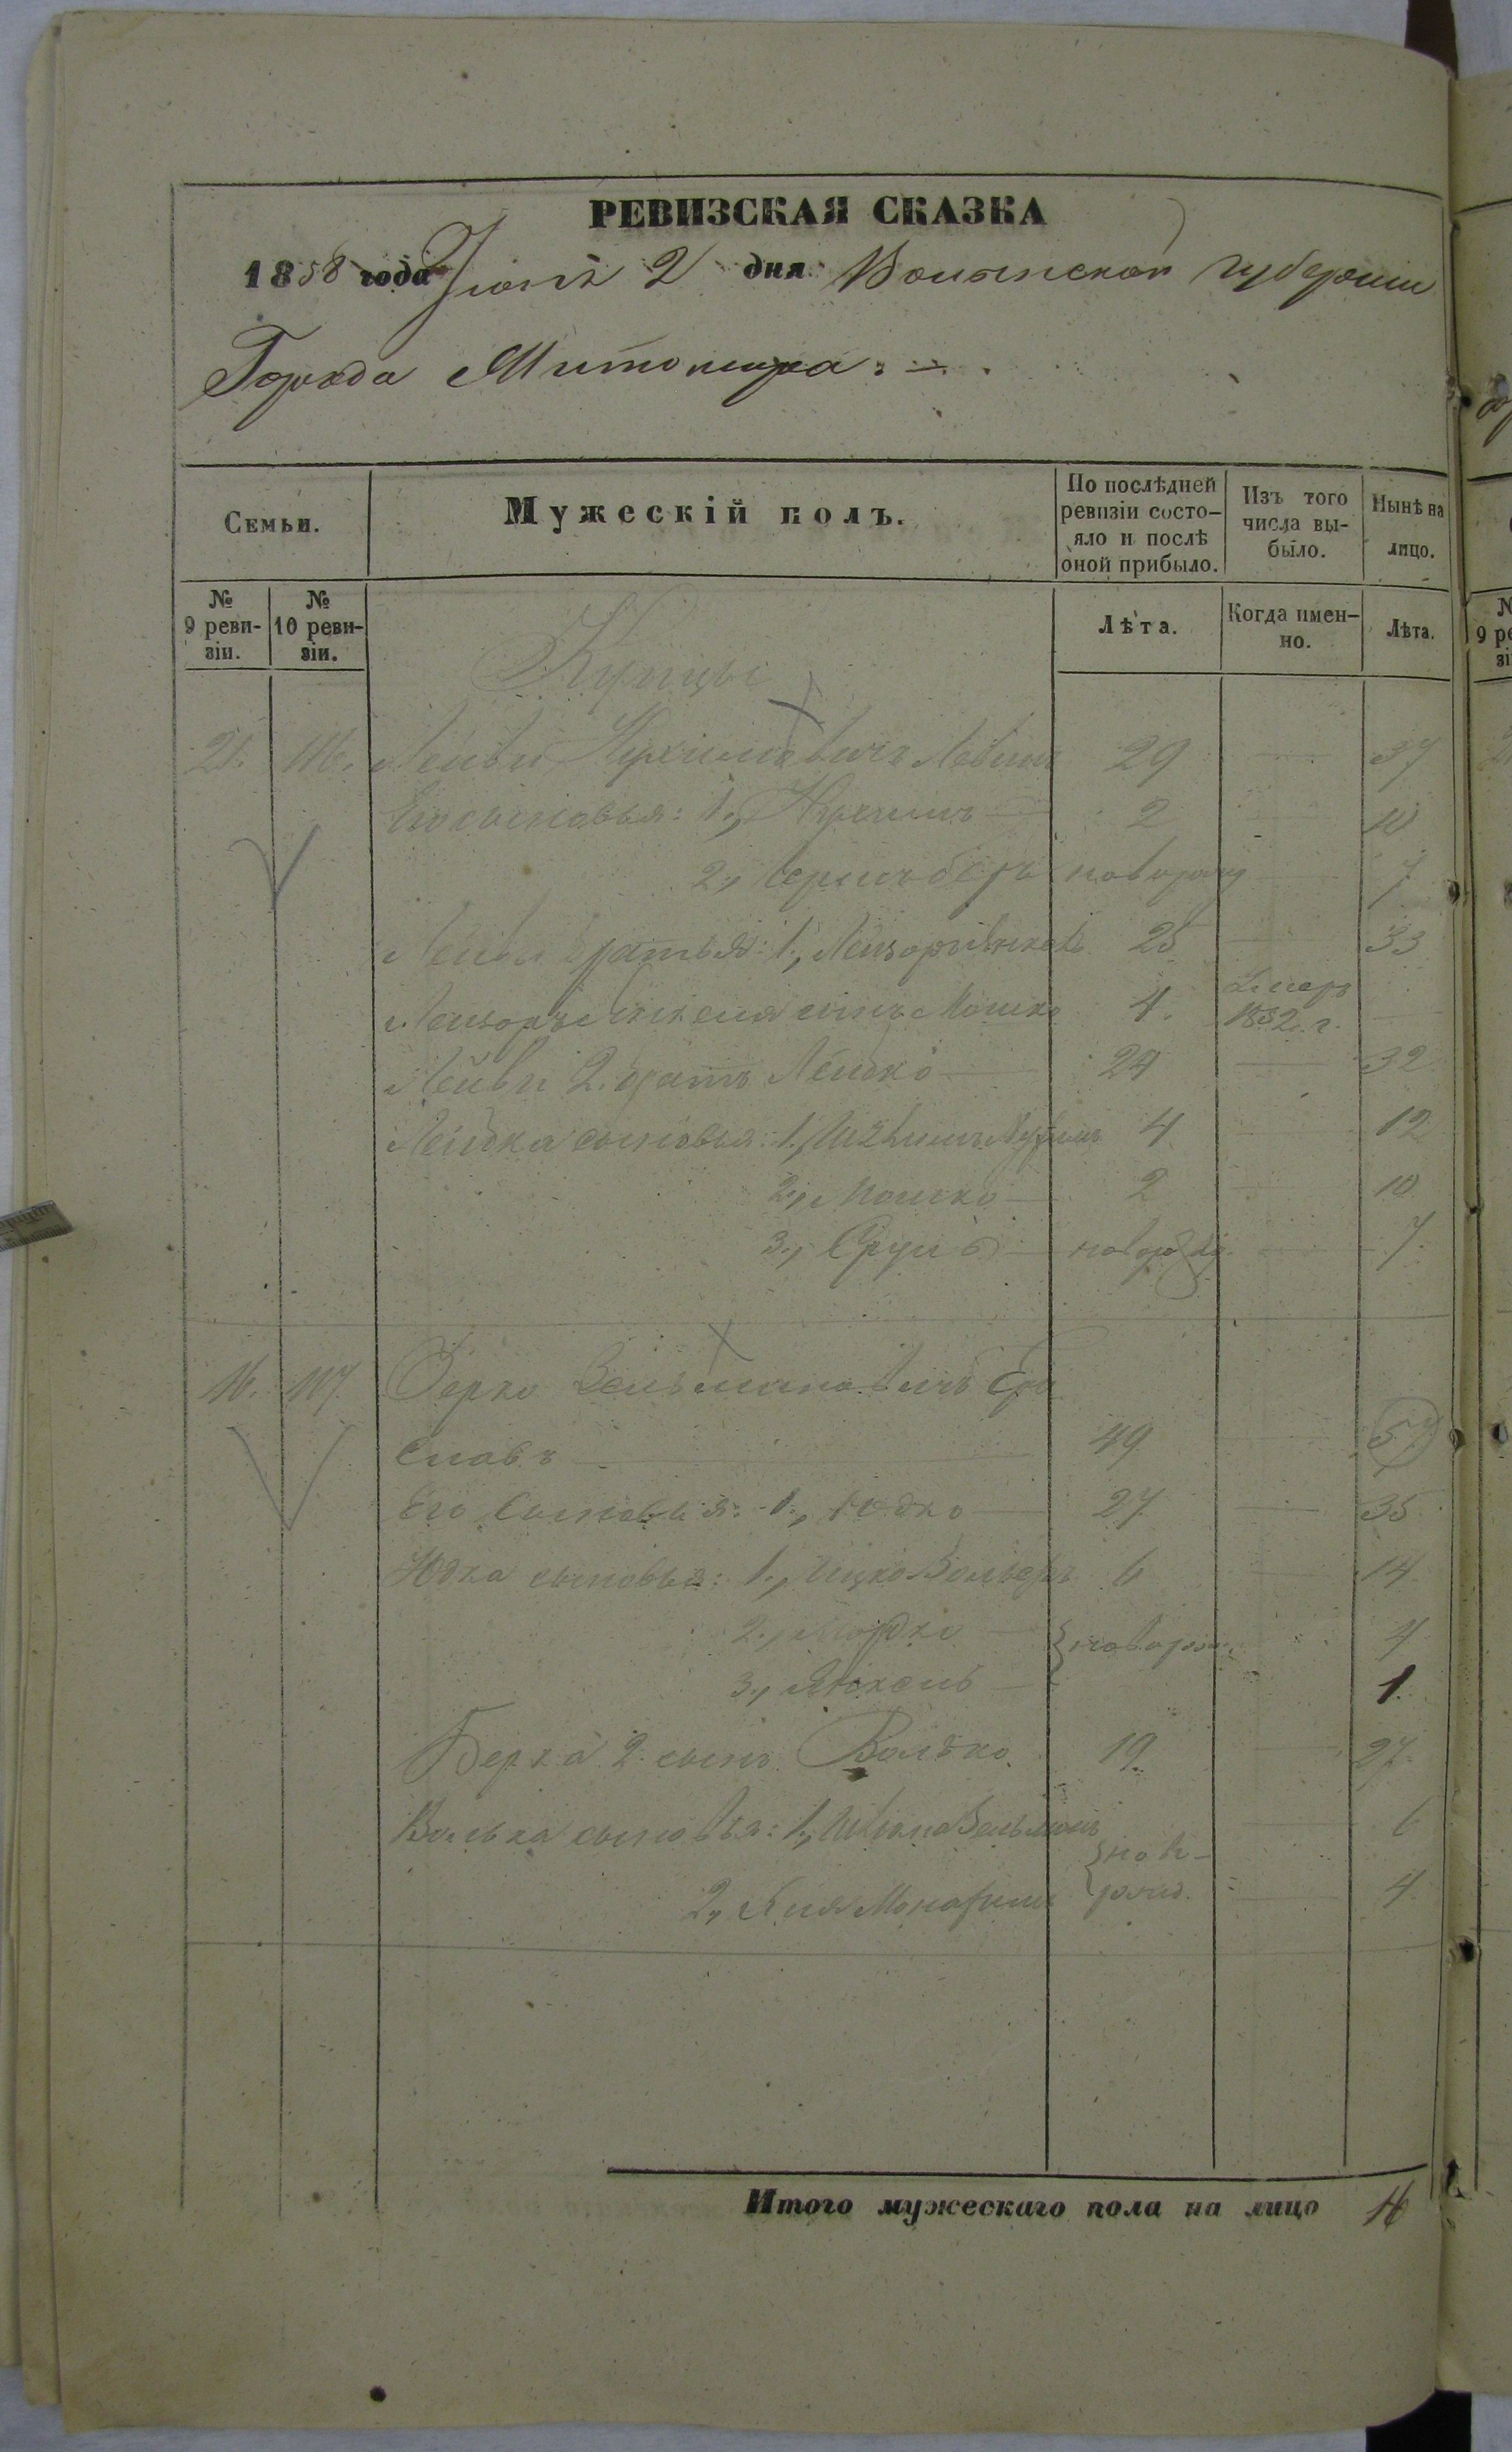 РЕВИЗСКАЯ СКАЗКА
1858 года Іюня 2 дня Волынской губерніи
Города Житомира
Семьи.
Мужескій полъ.
По послѣдней ревизіи состо-
яло и послѣ оной прибыло.
Изъ того числа вы-
было.
Нынѣ на лицо.
№ 9 реви-
зіи.
№ 10 реви-
зіи.
Лѣта.
Когда имен-
но.
Лѣта.
Купцы
21. 116. Лейви Нухимовичъ Левинъ 29 — 37
Его сыновья: 1., Нухимъ — 2 — 10
2., Беръ новорожд — 7
Лейви братья: 1., 25 — 33
сынъ Мошко 4. Умеръ 1852. г. —
Лейви 2. братъ Лейбко — 24 — 32
Лейбка сыновья: 1., 4 — 12
2., Мошко — 2 — 10
3., Сруль — новорожд. — 7.
16. 117. Берко Зельмановичъ
славъ — 49 — 57
Его сыновья: 1., Юдко — 27 — 35
Юдка сыновья: 1., Ицко 6 — 14
2., Мордко — } новорож. 4
3., Янкель — 1.
Берка 2. сынъ Волько. 19. — 27.
Волька сыновья: 1., Зельманъ } ново- — 6
2., рожд. — 4
Итого мужескаго пола на лицо 16